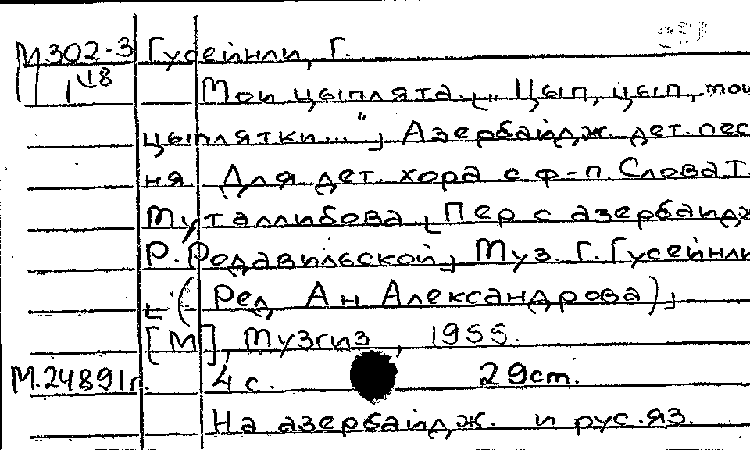 М302-3 Гусейнли, Г.
1 118 Мои цыплята. [„Цып, цып, мои
цыплятки..."] Азербайдж. дет. пес
ня Для дет. хора с ф-п Слова Т.
Муталлибова [Пер с азербайдж
Р. Редавильской] Муз Г. Гусейнли
[(Ред Ан Александрова)]
[М], Музгиз, 1955.
М.24891г. 4 с. 29cm.
На азербайдж. и рус. яз.